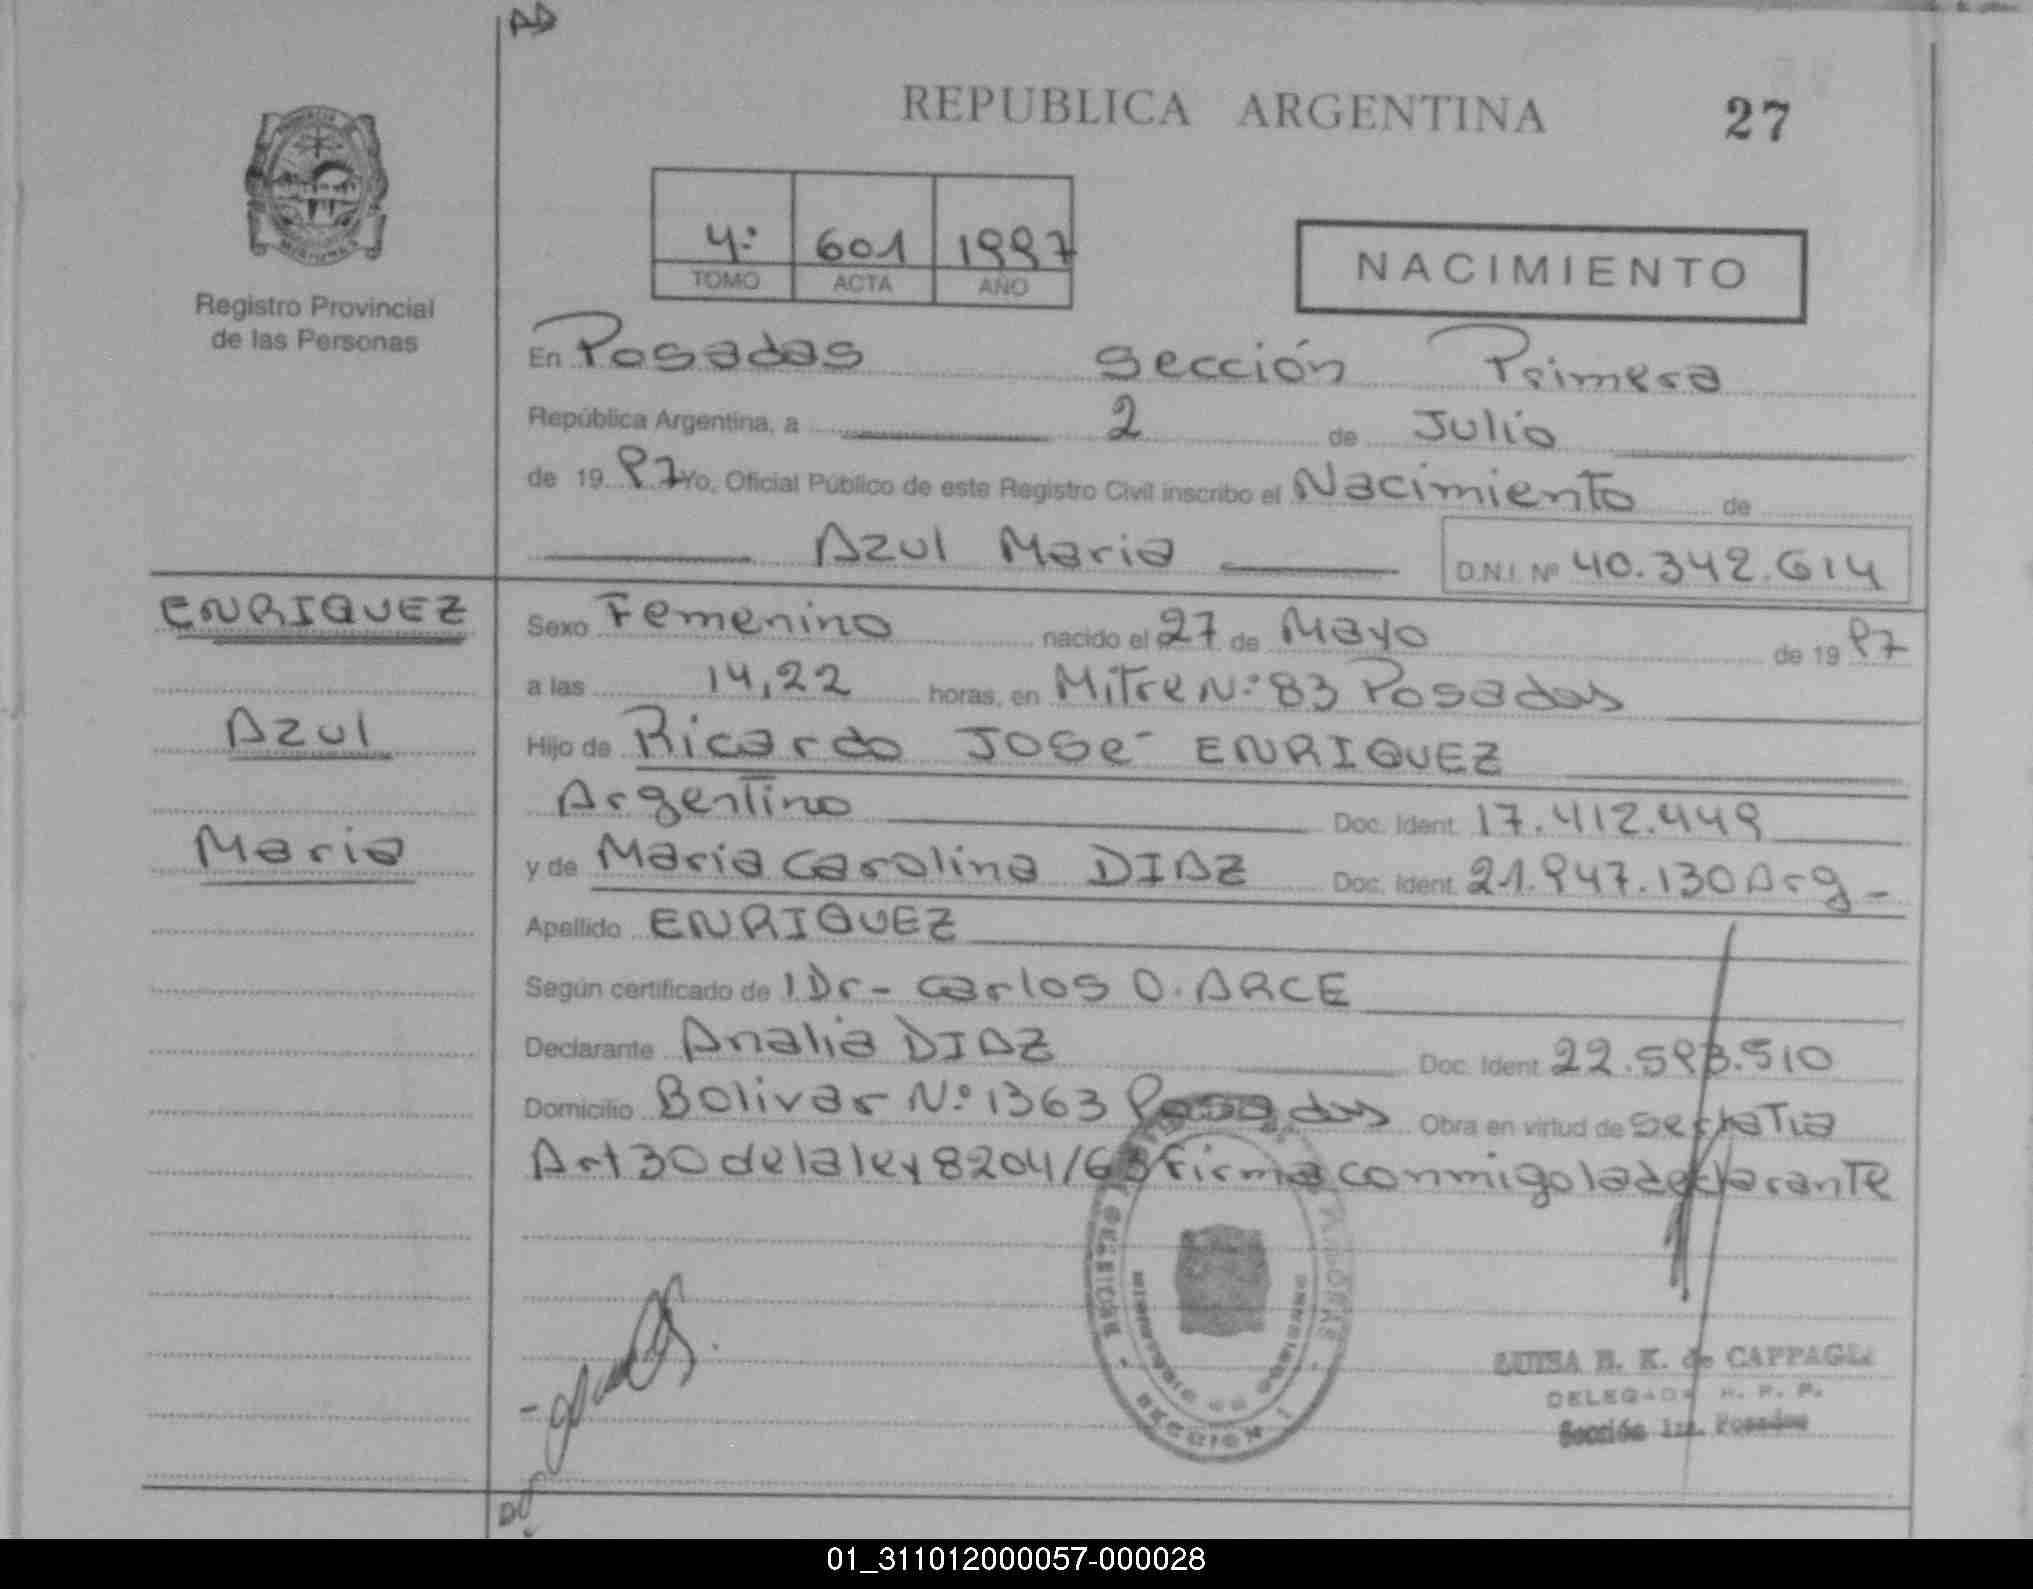 AD
REPUBLICA ARGENTINA
27
Registro Provincial
de las Personas
4º 601 1997
TOMO ACTA AÑO
NACIMIENTO
En Posadas sección Primera
República Argentina, a 2 de Julio
de 1997 Yo, Oficial Público de este Registro Civil inscribo el Nacimiento de
Azul Maria
D.N.I. Nº 40.342.614
ENRIQUEZ
Azul
Maria
Sexo Femenino nacido el 27 de Mayo de 1997
a las 14,22 horas, en Mitre Nº 83 Posadas
Hijo de Ricardo José ENRIQUEZ
Argentino Doc. Ident. 17.412.449
y de Maria Carolina DIAZ Doc. Ident. 21.947.130 Arg-
Apellido ENRIQUEZ
Según certificado de l Dr- Carlos O. ARCE
Declarante Analia DIAZ Doc. Ident. 22.593.510
Domicilio Bolivar Nº 1363 Posadas Obra en virtud de
Art 30 de la ley 8204/63 firma conmigo la declarante
SECCION 1
LUISA B. K. de CAPPAGLI
DELEGADA R. P. P.
Sección 1ra. Posadas
01_311012000057-000028